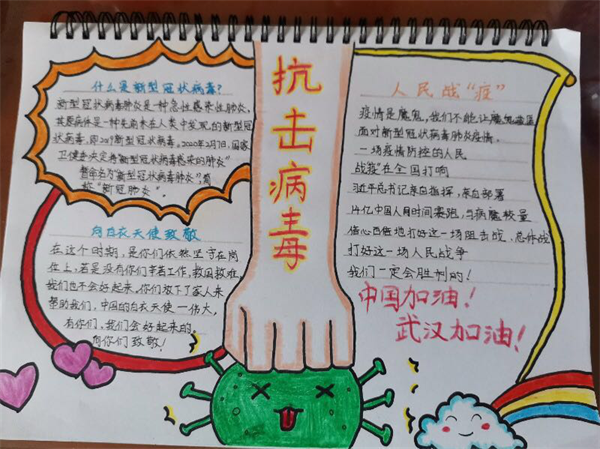 什么是新型冠状病毒?
新型冠状病毒肺炎是一种急性感染性肺炎,
其病原体是一种先前未在人类中发现的新型冠
状病毒,即2019新型冠状病毒。2020年2月7日,国家
卫健委决定将"新型冠状病毒感染的肺炎"
暂命名为"新型冠状病毒肺炎",简
称"新冠肺炎"。
向白衣天使致敬
在这个时期,是你们依然坚守在岗
位上,若是没有你们辛苦工作,救国救难,
我们也不会好起来,你们放下了家人来
帮助我们,中国的白衣天使一伟大,
有你们,我们会好起来的,
向你们致敬!
抗击病毒
人民战"疫"
疫情是魔鬼,我们不能让魔鬼
面对新型冠状病毒肺炎疫情,
一场疫情防控的人民
战"疫"在全国打响
习近平总书记亲自指挥,亲自部署
14亿中国人用时间赛跑,与病魔较量
信心百倍地打好这一场阻击战,总体战
打好这一场人民战争
我们一定会胜利的!
中国加油!
武汉加油!